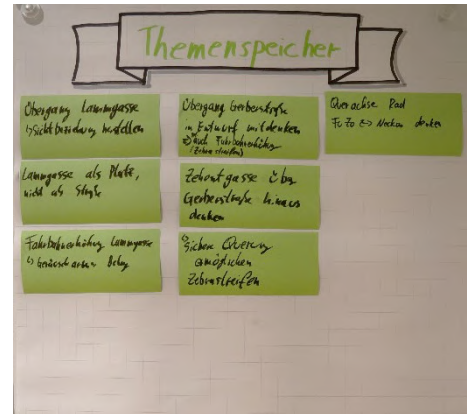 Themenspeicher
Übergang Lammgasse
↳ Sichtbeziehung herstellen
Lammgasse als Platz,
nicht als Straße
Fahrbahnerhöhung Lammgasse
↳ Geräuscharmer Belag
Übergang Gerberstraße
in Entwurf mitdenken
auch Fahrbahnerhöhung
(Zebrastreifen)
Zehntgasse über
Gerberstraße hinaus
denken
Sichere Querung
ermöglichen
Zebrastreifen
Querachse Rad
FuZo <-> Neckar denken